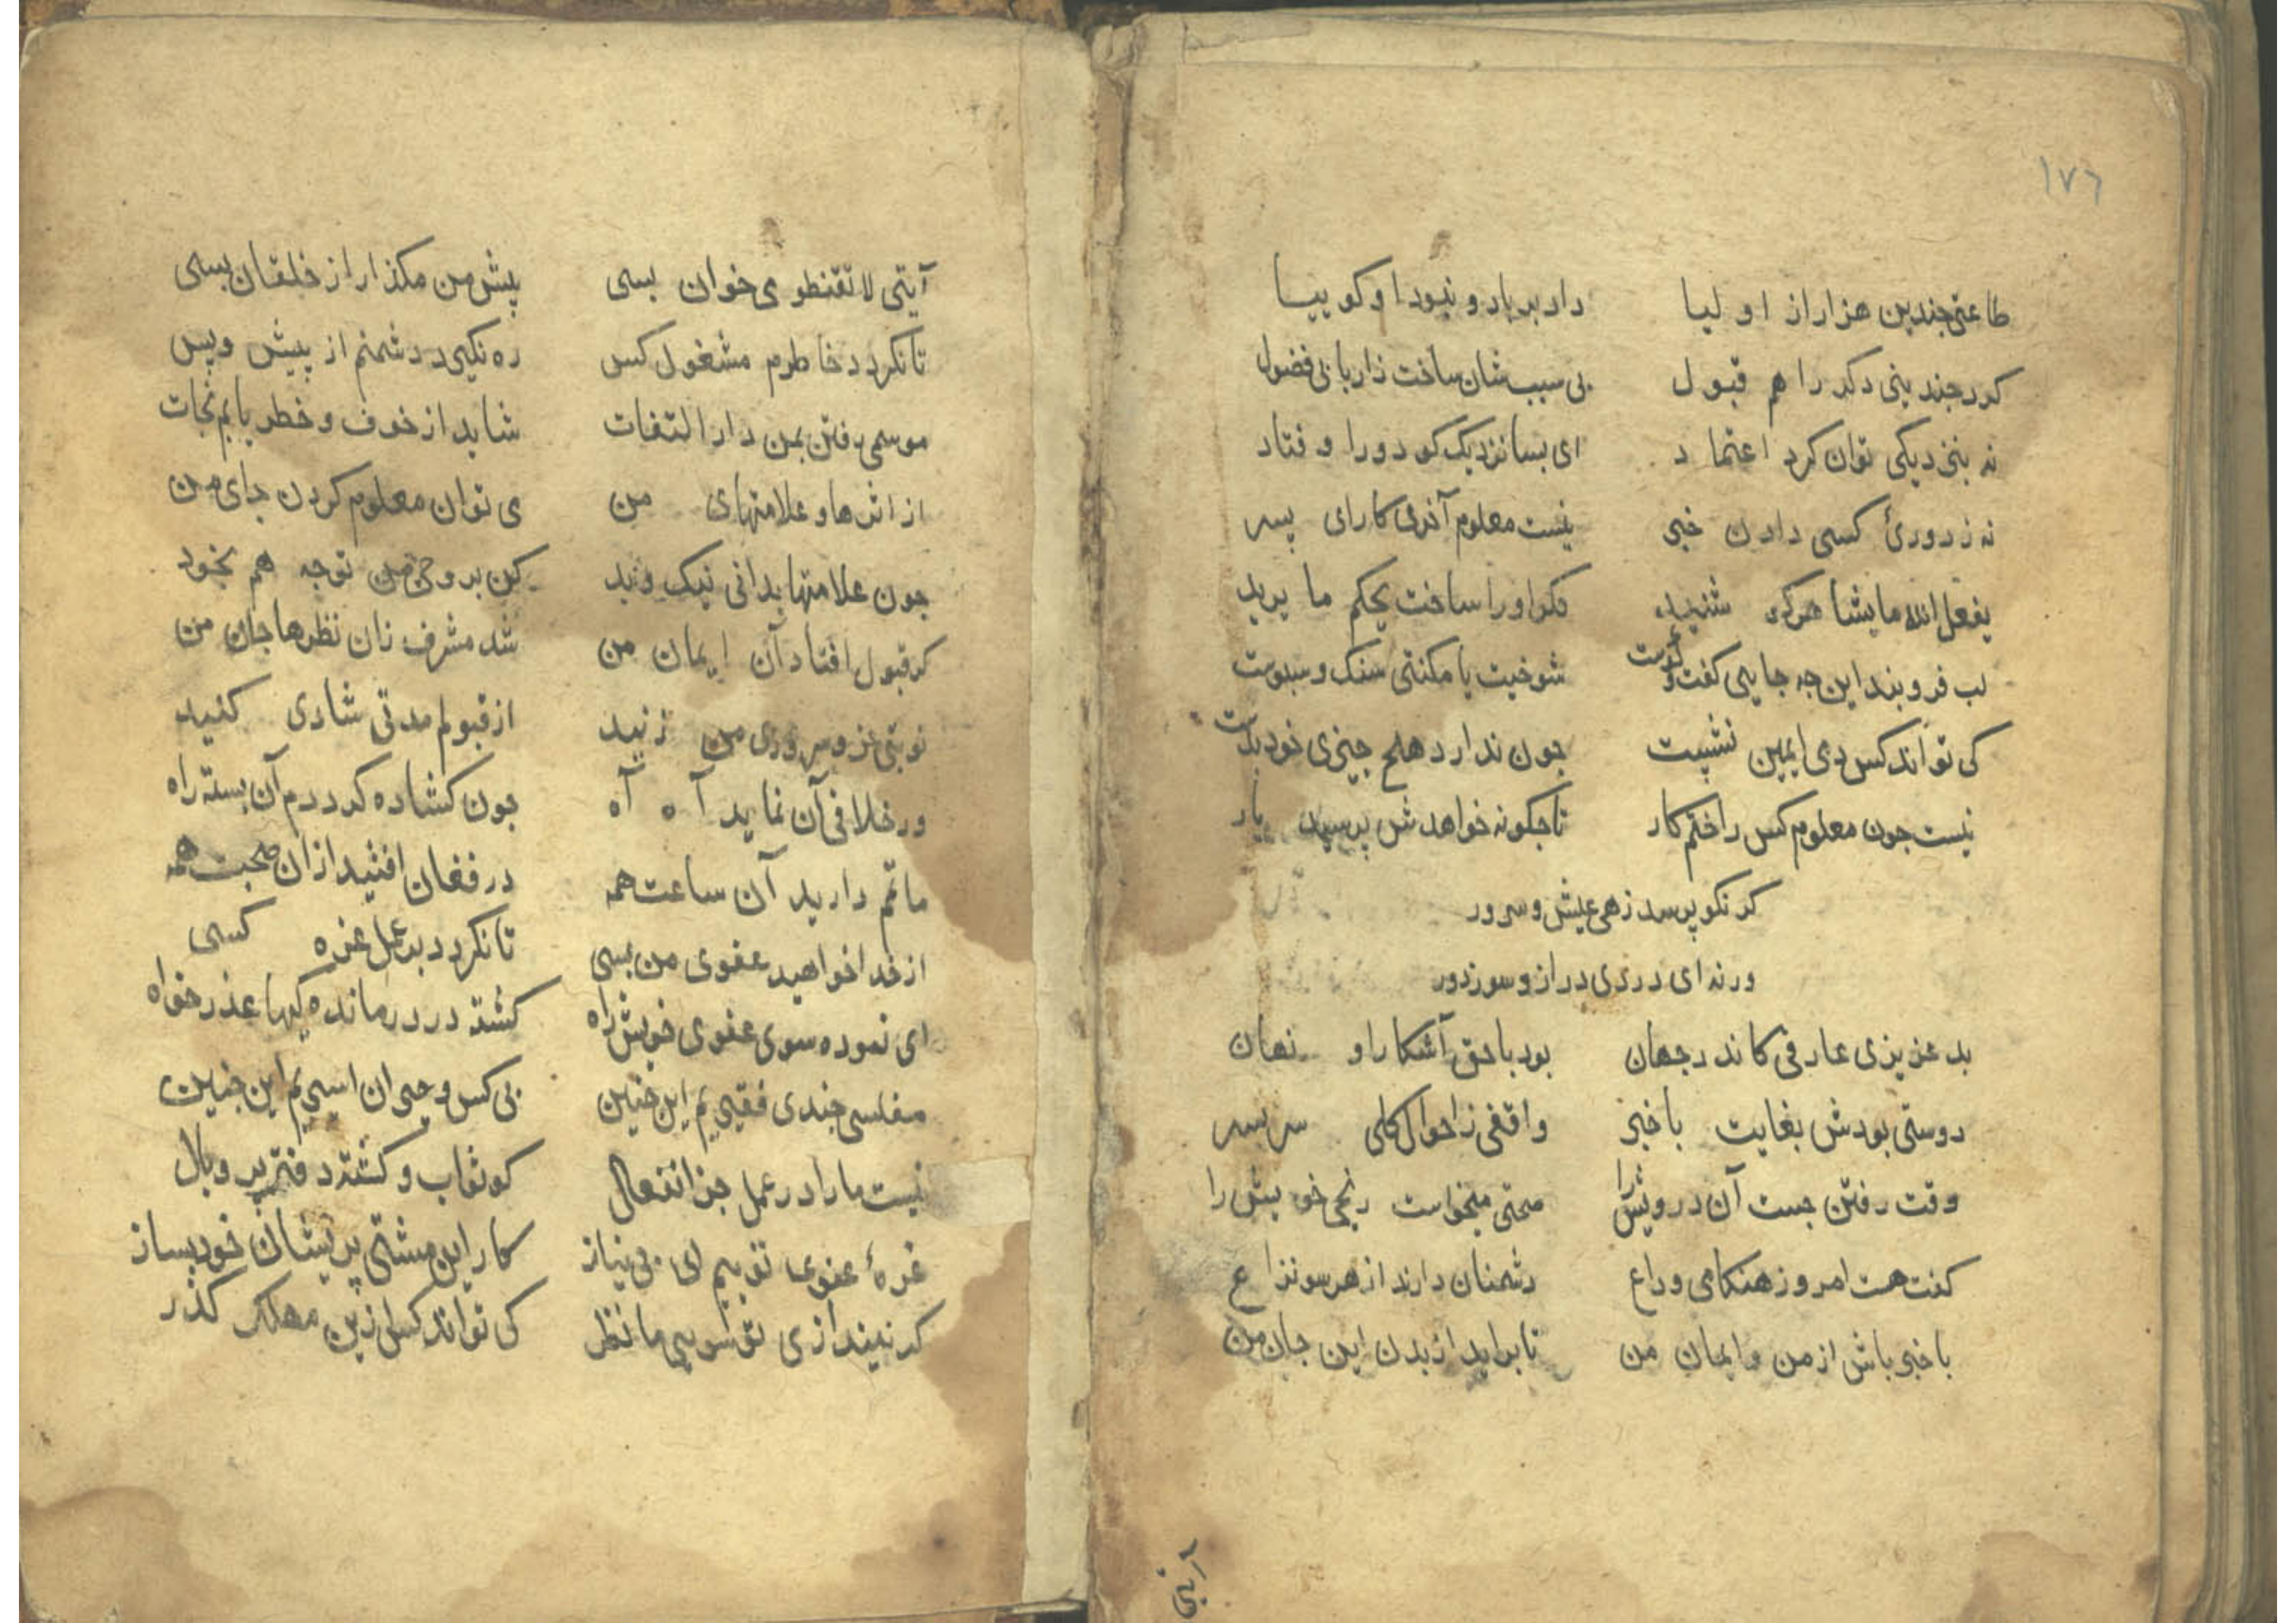 ١٧٦
طاعتی جندین هزار از اولیا داد بر باد و نبود او کو بیسا
کرد جندینی دکر را هم قبول بی سبب شان ساخت زار یا بی فضول
نه بنزدیکی توان کرد اعتماد ای بسا نزدیک کو دورا وفتاد
نه ز دورئ کسی دادن خبر نیست معلوم آخری کار ای پسر
یفعل الله مایشا هرکه شنید فکر او را ساخت یحکم ما یرید
لب فروبند این جه جایی کفت و کوست شوخیت با مکنتی سنک و سبوست
کی تواند کس دمی ایمین نشیت جون ندارد هلج جیزی خود بدست
نیست جون معلوم کس را ختم کار تا جکونه خواهدش پرسید یار
کر نکو پرسد زهی عیش و سرور
ور نه ای دردی دراز و سوز دور
بد عزیزی عارفی کاندر جهان بود با حق آشکارا و نهان
دوستی بودش بغایت باخبر واقفی ز احوال کلی سر بسر
وقت رفتن جست آن درویش را صحتی میخواست رنجی خویش را
کفت هست امروز هنکامی وداع دشمنان دارند از هر سو نزاع
باخبر باش از من و ایمان من تا براید از بدن این جان من
آیتی
آیتی لا تقنطو می خوان بسی پیش من مکذار از خلقان بسی
تا نکردد خاطرم مشغول کس ره نکیرد دشمنم از پیش و پس
موسمی رفتن بمن دار التفات شاید از خوف و خطر یابم نجات
از اثرها و علامتهای من می توان معلوم کردن جای من
جون علامتها بدانی نیک و بد کن بروحی من توجه هم بخود
کر قبول افتاد آن ایمان من شد مشرف زان نظرها جان من
نوبتی عز و سروری من زنید از قبولم مدتی شادی کنید
ور خلافی آن نماید آه آه جون کشاده کردم آن بسته راه
ماتم دارید آن ساعت همه در فغان افتید از ان صحبت همه
از خدا خواهید عفوی من بسی تا نکردد بر عمل غره کسی
ای نموده سوی عفوی خویش راه کشته در درماند کیها عذر خواه
مفلسی جندی فقیریم این جنین بی کس و حیران اسیریم این جنین
نیست مارا در عمل جز انفعال کو ثواب و کشته دفتر پر وبال
غرهٔ عفوی توییم ای بی نیاز کار این مشتی پریشان خود بساز
کر نیندازی تو سویی ما نظر کی تواند کس ازین مهلکه کذر